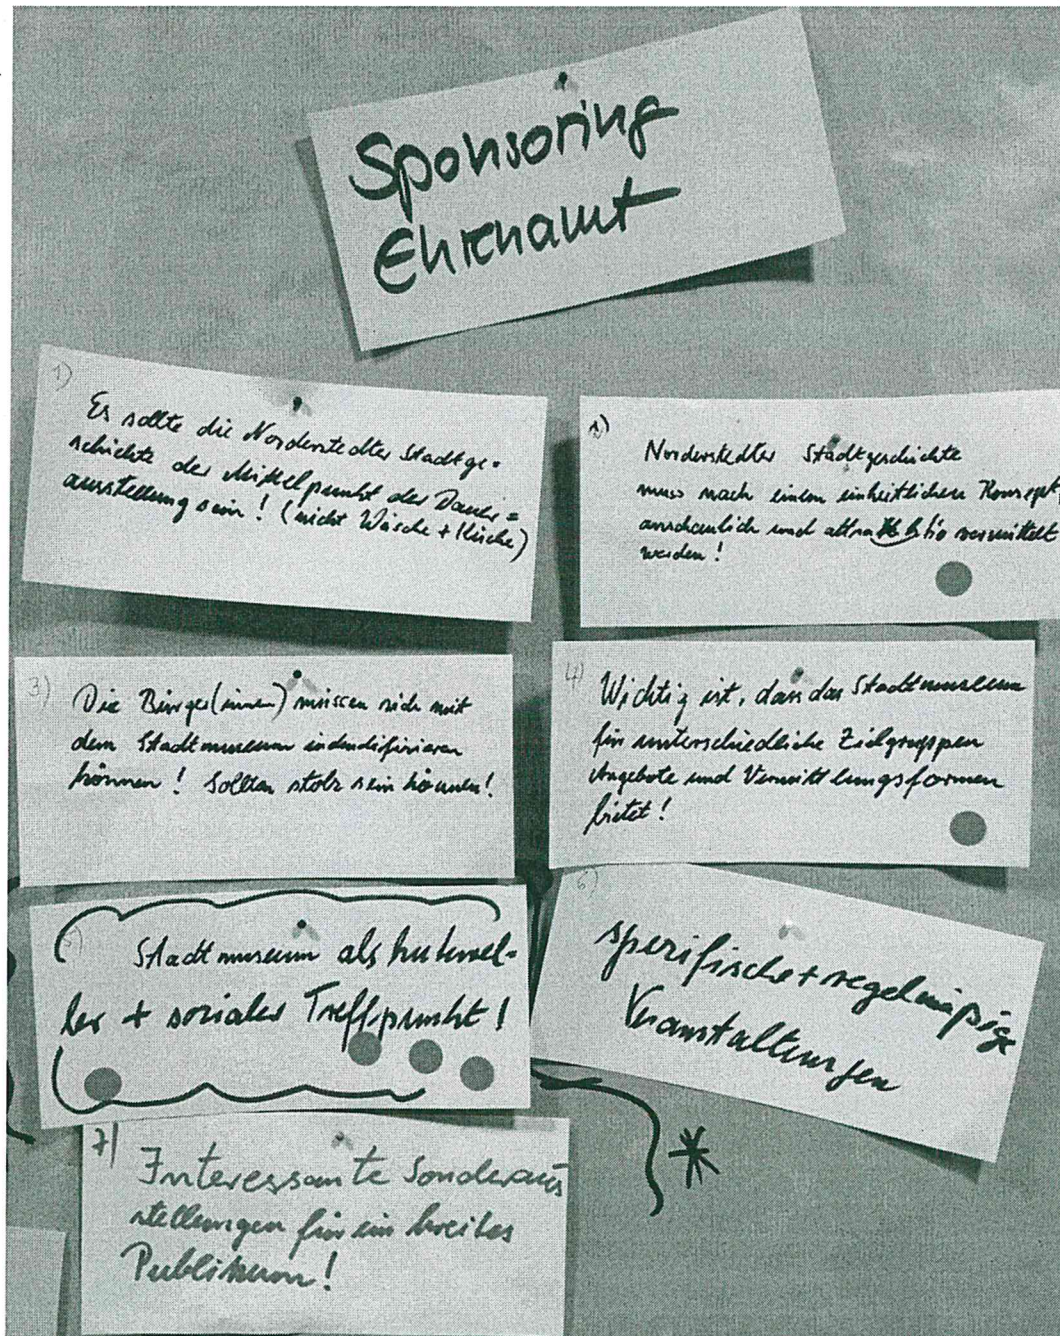 Sponsoring
Ehrenamt
1)
Es sollte die Norderstedter Stadtge=
schichte der Mittelpunkt der Dauer=
ausstellung sein! (nicht Wäsche + Küche)
2)
Norderstedter Stadtgeschichte
muss nach einem einheitlichen Konzept,
anschaulich und attraktiv vermittelt
werden!
3)
Die Bürger(innen) müssen sich mit
dem Stadtmuseum indendifizieren
können! Sollten stolz sein können!
4)
Wichtig ist, dass das Stadtmuseum
für unterschiedliche Zielgruppen
Angebote und Vermittlungsformen
bietet!
5)
Stadtmuseum als kulturel-
ler + sozialer Treffpunkt!
6)
spezifische + regelmäßige
Veranstaltungen
7)
Interessante Sonderaus
stellungen für ein breites
Publikum!